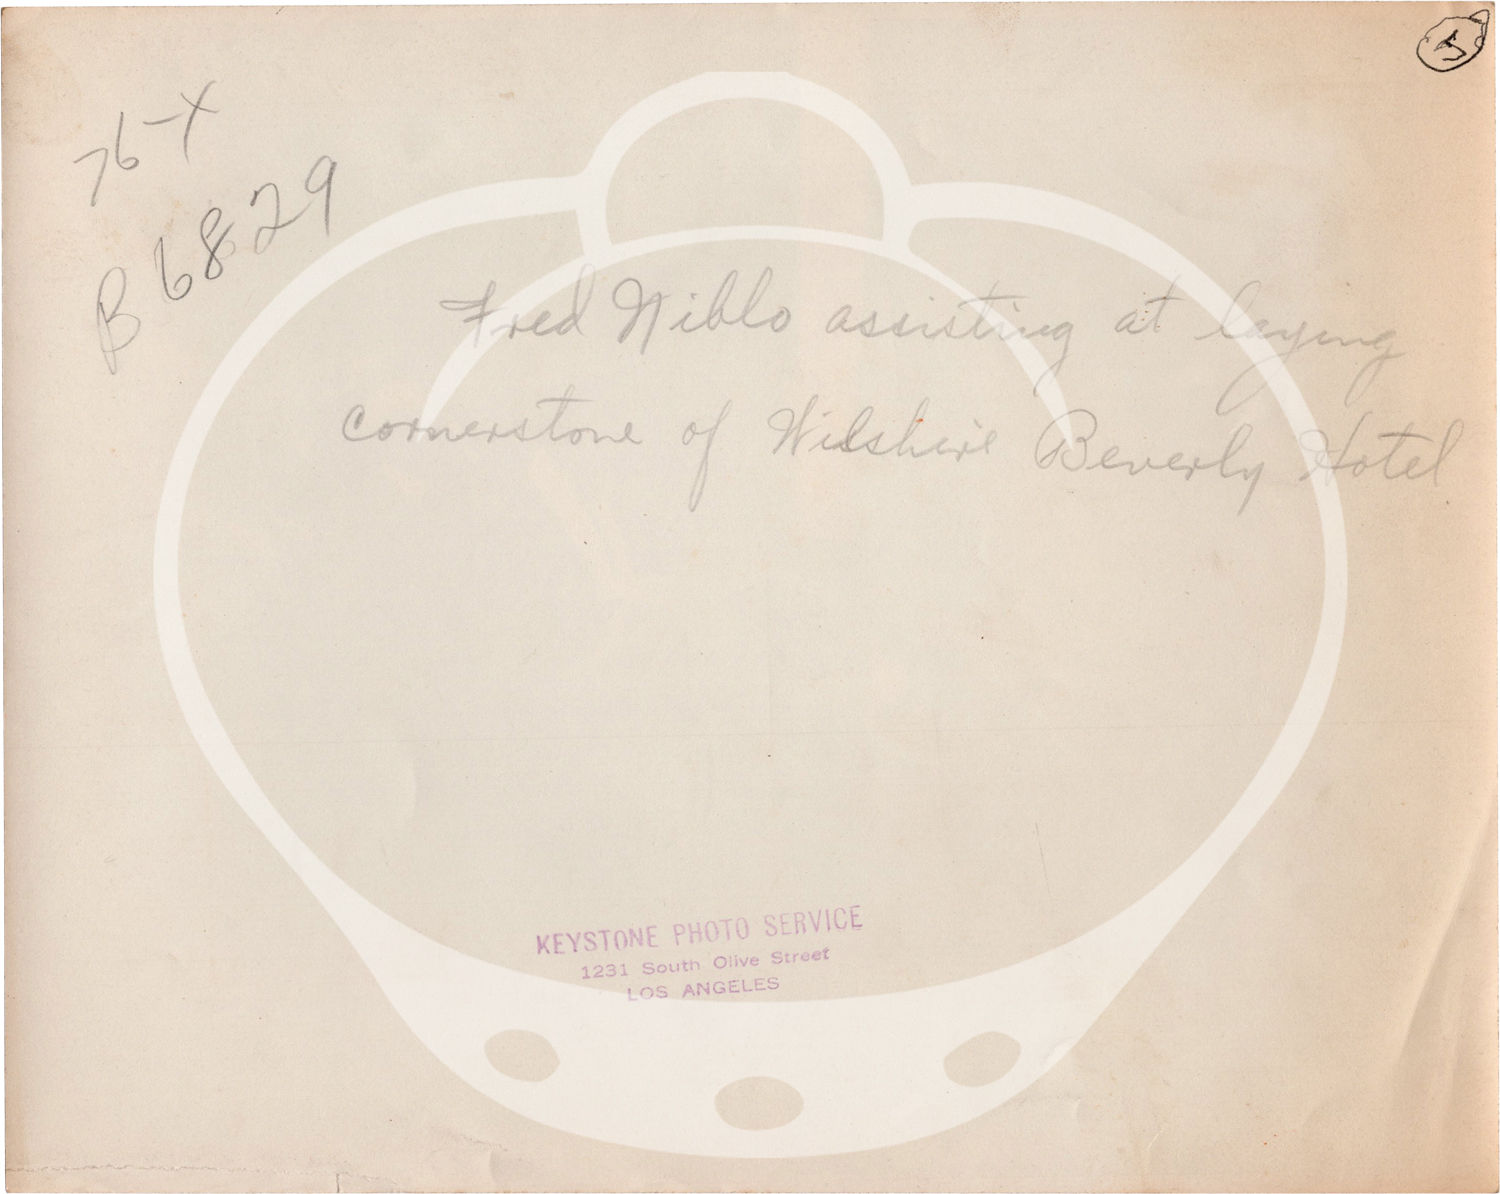 76-X
B6829
Fred Niblo assisting at laying
cornerstone of Wilshire Beverly Hotel
KEYSTONE PHOTO SERVICE
1231 South Olive Street
LOS ANGELES